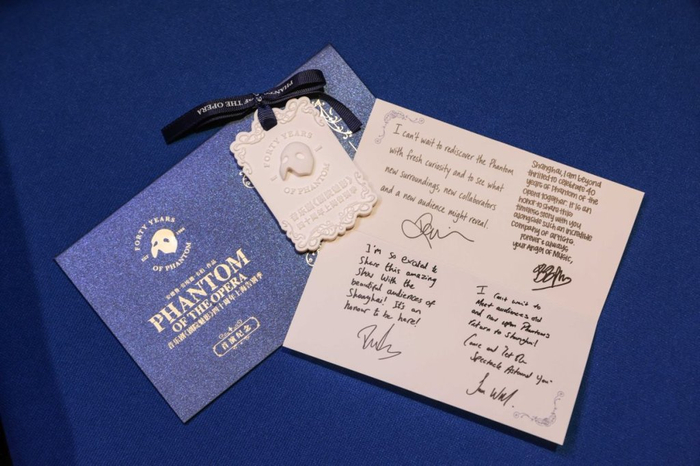 THE OPERA
FORTY YEARS
OF PHANTOM
FORTY YEARS
OF PHANTOM
PHANTOM
OF THE OPERA
音乐剧《剧院魅影》四十周年上海
首演纪念
I can't wait to rediscover the Phantom
with fresh curiosity and to see what
new surroundings, new collaborators
and a new audience might reveal.
Shanghai, I am beyond
thrilled to celebrate 40
years of Phantom of the
Opera together. It is an
honor to share this
timeless story with you
alongside such an incredible
Company of artists
forever & always
your Angel of Music,
I'm so excited to
Share this amazing
Show with the
beautiful audiences of
Shanghai! It's an
honour to be here!
I can't wait to
Meet audiences old
and new upon Phantom's
return to Shanghai!
Come and let the
Spectacle Astound you